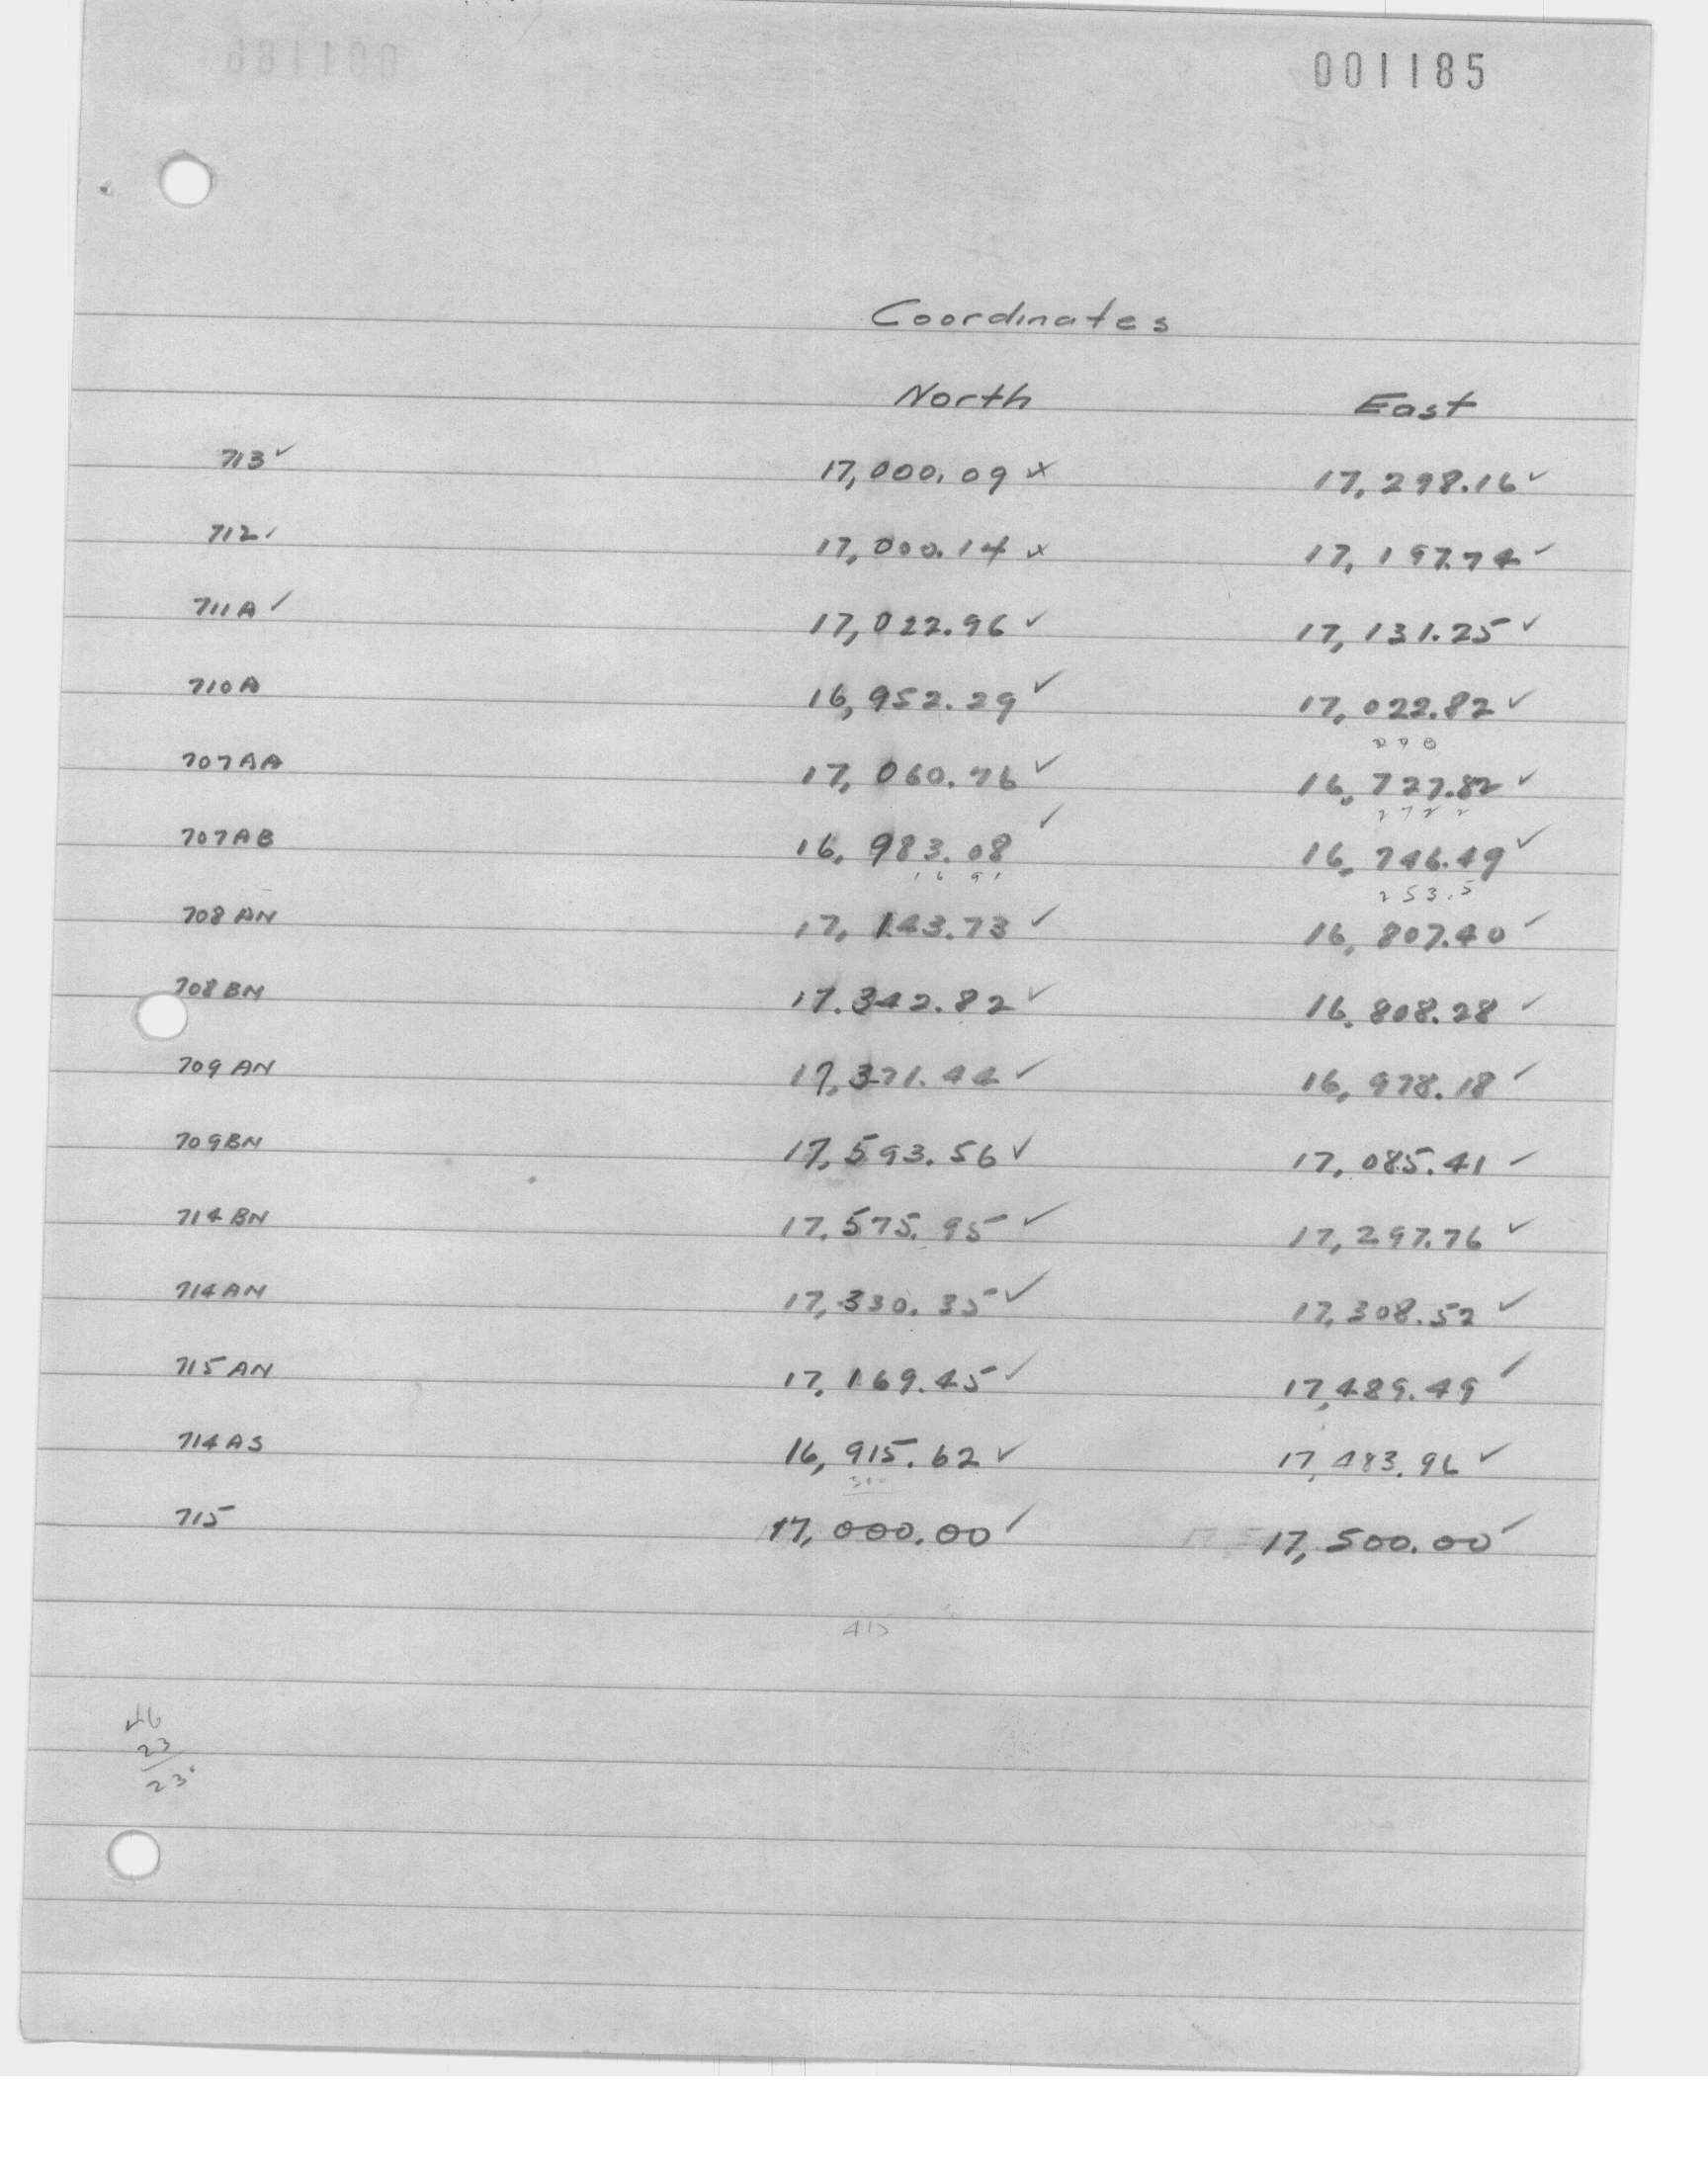 001185
Coordinates
North East
713✓ 17,000.09 x 17,298.16✓
712✓ 17,000.14 x 17,197.74✓
711A✓ 17,022.96✓ 17,131.25✓
710A 16,952.29✓ 17,022.82✓
707AA 17,060.76✓ 16,727.82✓
707AB 16,983.08✓ 16,746.49✓
253.5
708AN 17,143.73✓ 16,807.40✓
708BN 17.342.82✓ 16.808.28✓
709AN 17,371.44✓ 16,978.18✓
709BN 17,593.56✓ 17,085.41✓
714BN 17.575.95✓ 17,297.76✓
714AN 17,330.35✓ 17,308.52✓
715AN 17,169.45✓ 17,489.49✓
714AS 16,915.62✓ 17,483.96✓
715 17,000.00✓ 17,500.00✓
46
23
23